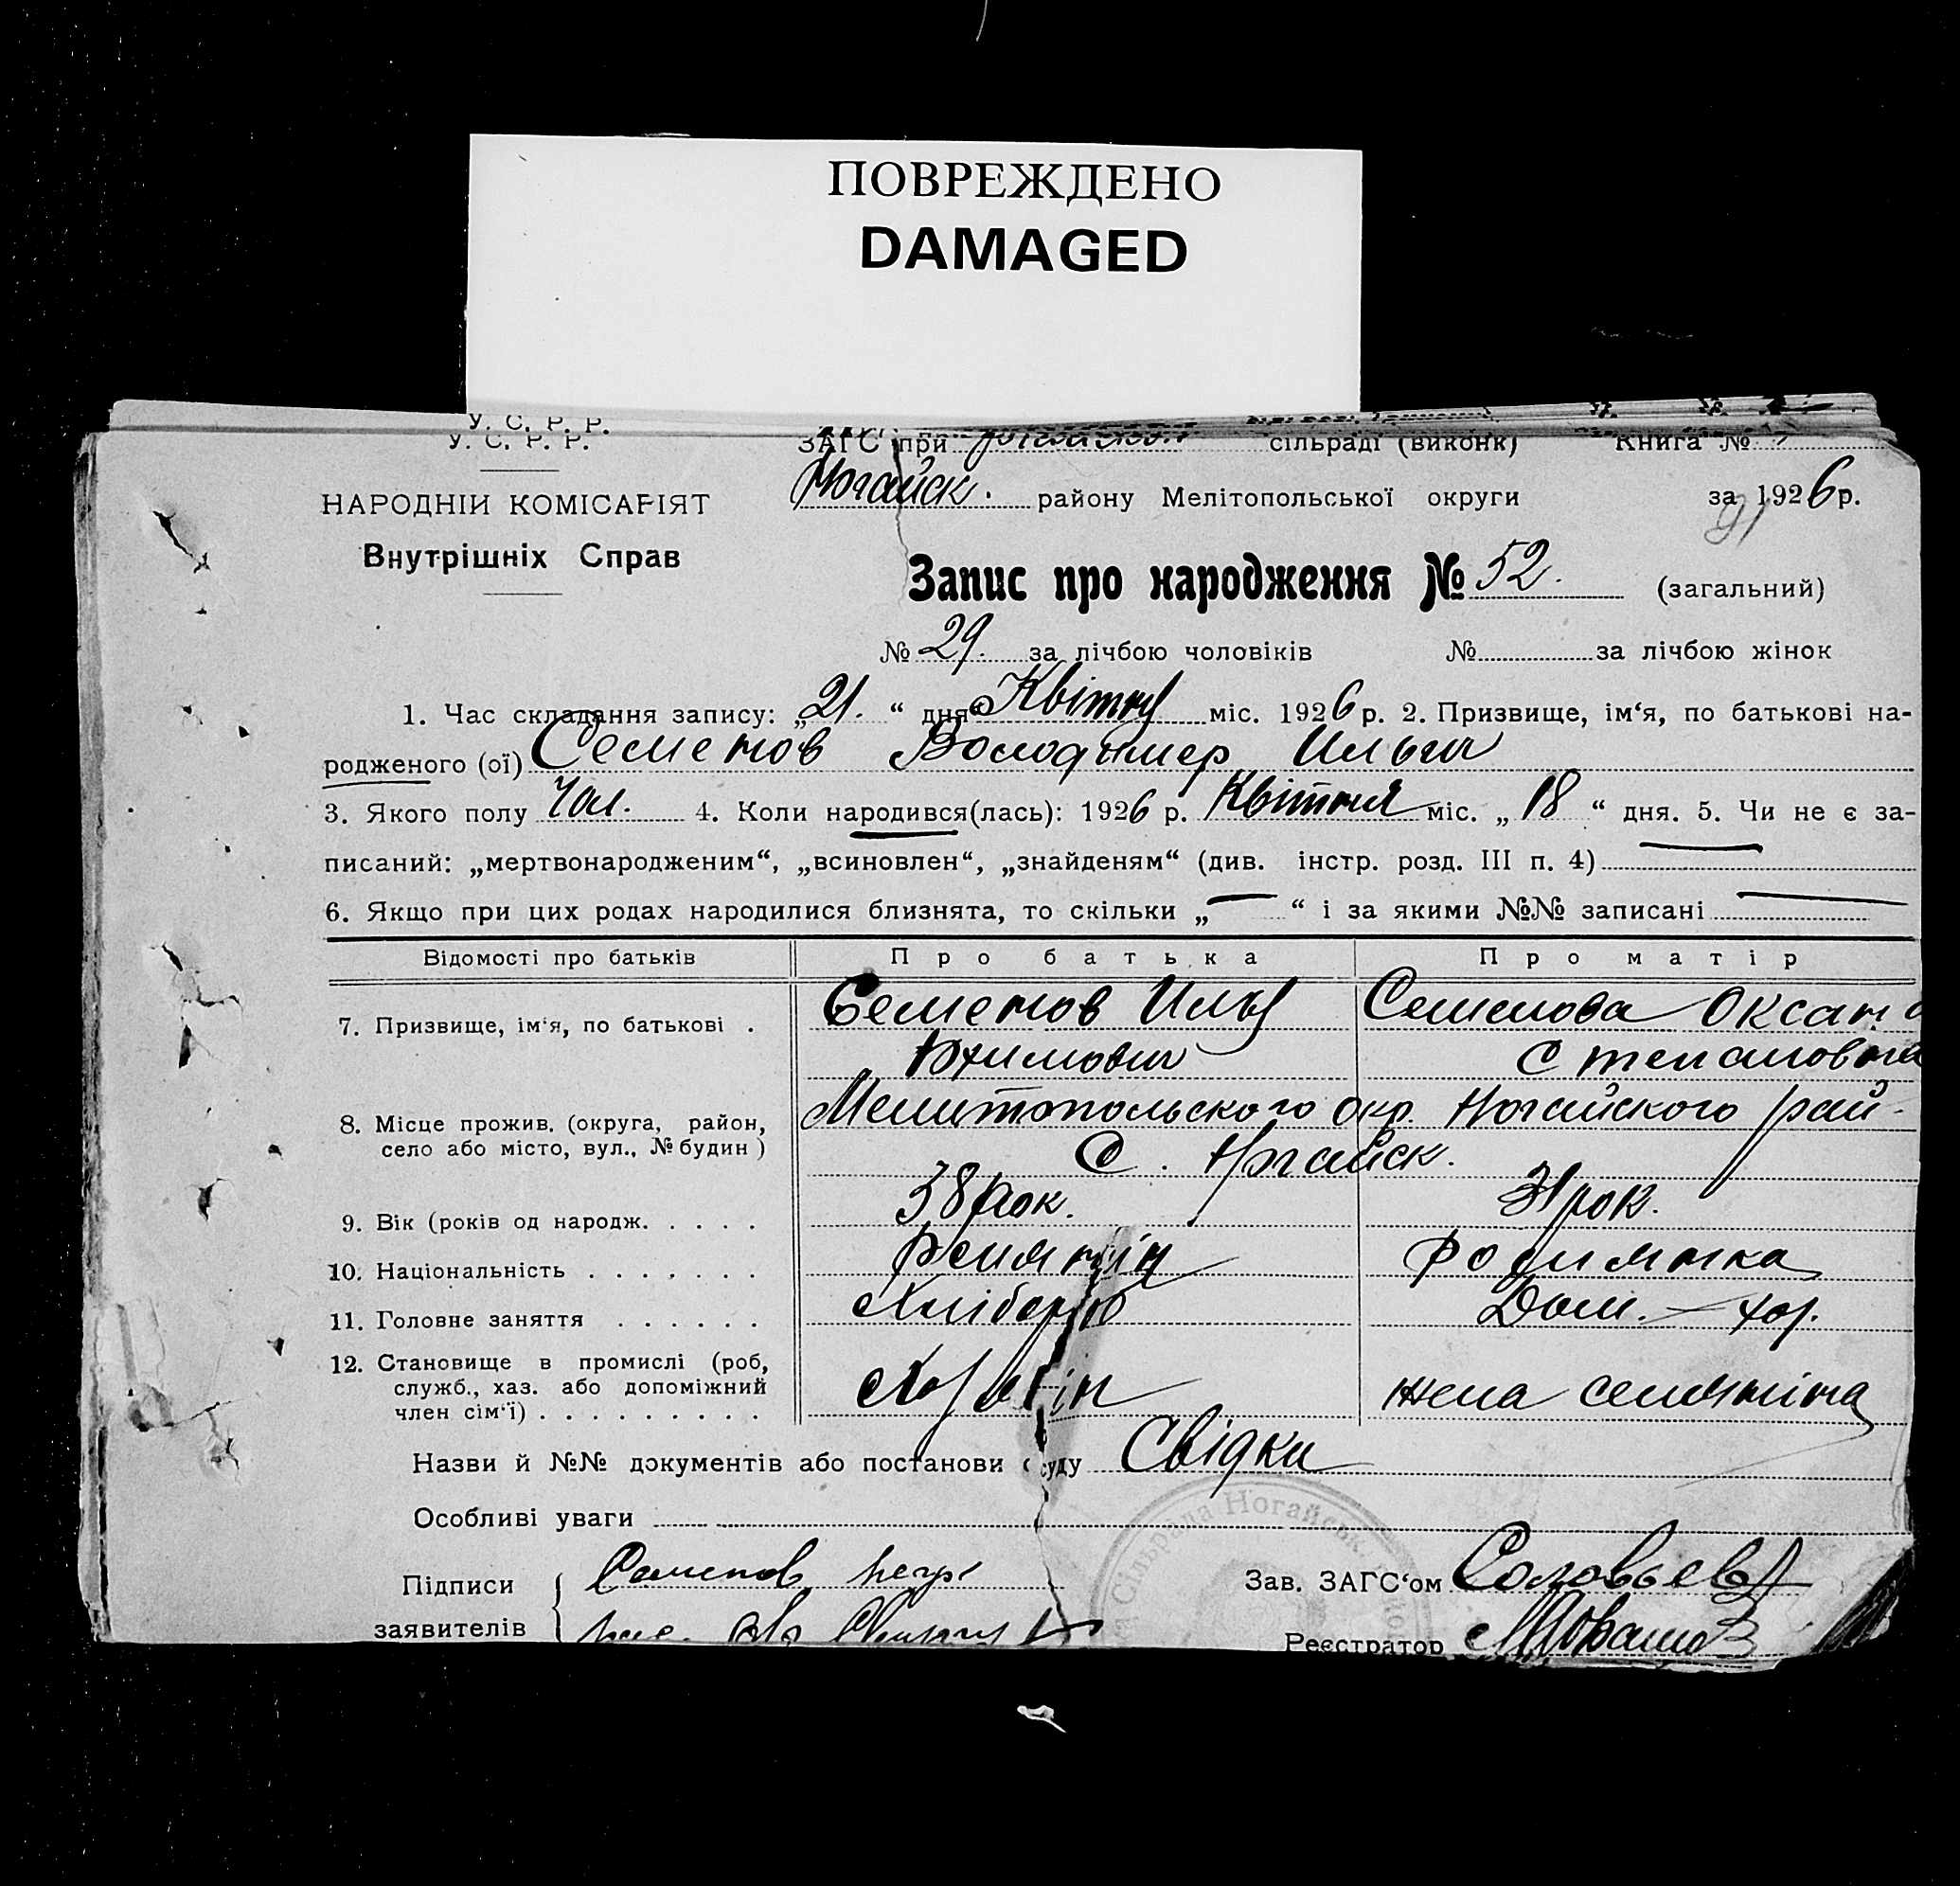 ПОВРЕЖДЕНО
DAMAGED
У. С. Р. Р.
У. С. Р. Р.
ЗАГС при сільраді (виконк) Книга №
Ногайск. району Мелітопольської округи за 1926 р.
91
НАРОДНІЙ КОМІСАРІЯТ
Внутрішніх Справ
Запис про народження № 52. (загальний)
№ 29. за лічбою чоловіків № за лічбою жінок
1. Час складання запису: „21.“ дня Квітня міс. 1926 р. 2. Призвище, ім‘я, по батькові на-
родженого (ої) Семенов Володимер Ильич
3. Якого полу Чол. 4. Коли народився(лась): 1926 р. Квітня міс. „18“ дня. 5. Чи не є за-
писаний: „мертвонародженим“, „всиновлен“, „знайденям“ (див. інстр. розд. III п. 4) —
6. Якщо при цих родах народилися близнята, то скільки „—“ і за якими №№ записані —
Відомості про батьків Про батька Про матір
7. Призвище, ім‘я, по батькові . Семенов Илья Семенова Оксана
Степановна
8. Місце прожив. (округа, район, село або місто, вул., № будин) Мелитопольского окр. Ногайского рай-
С. Ногайск.
9. Вік (років од народж. . . . . 38 рок. 31 рок.
10. Національність . . . . . . .
11. Головне заняття . . . . . . Хлібороб Дом. — хоз.
12. Становище в промислі (роб, служб., хаз. або допоміжний член сім‘ї) . . . . . . . . . Хазяїн жена селяніна
Назви й №№ документів або постанови суду Свідки
Особливі уваги
Сільрада Ногайськ. Району
Підписи заявителів Семенов
Зав. ЗАГС‘ом Соловьев
Реєстратор